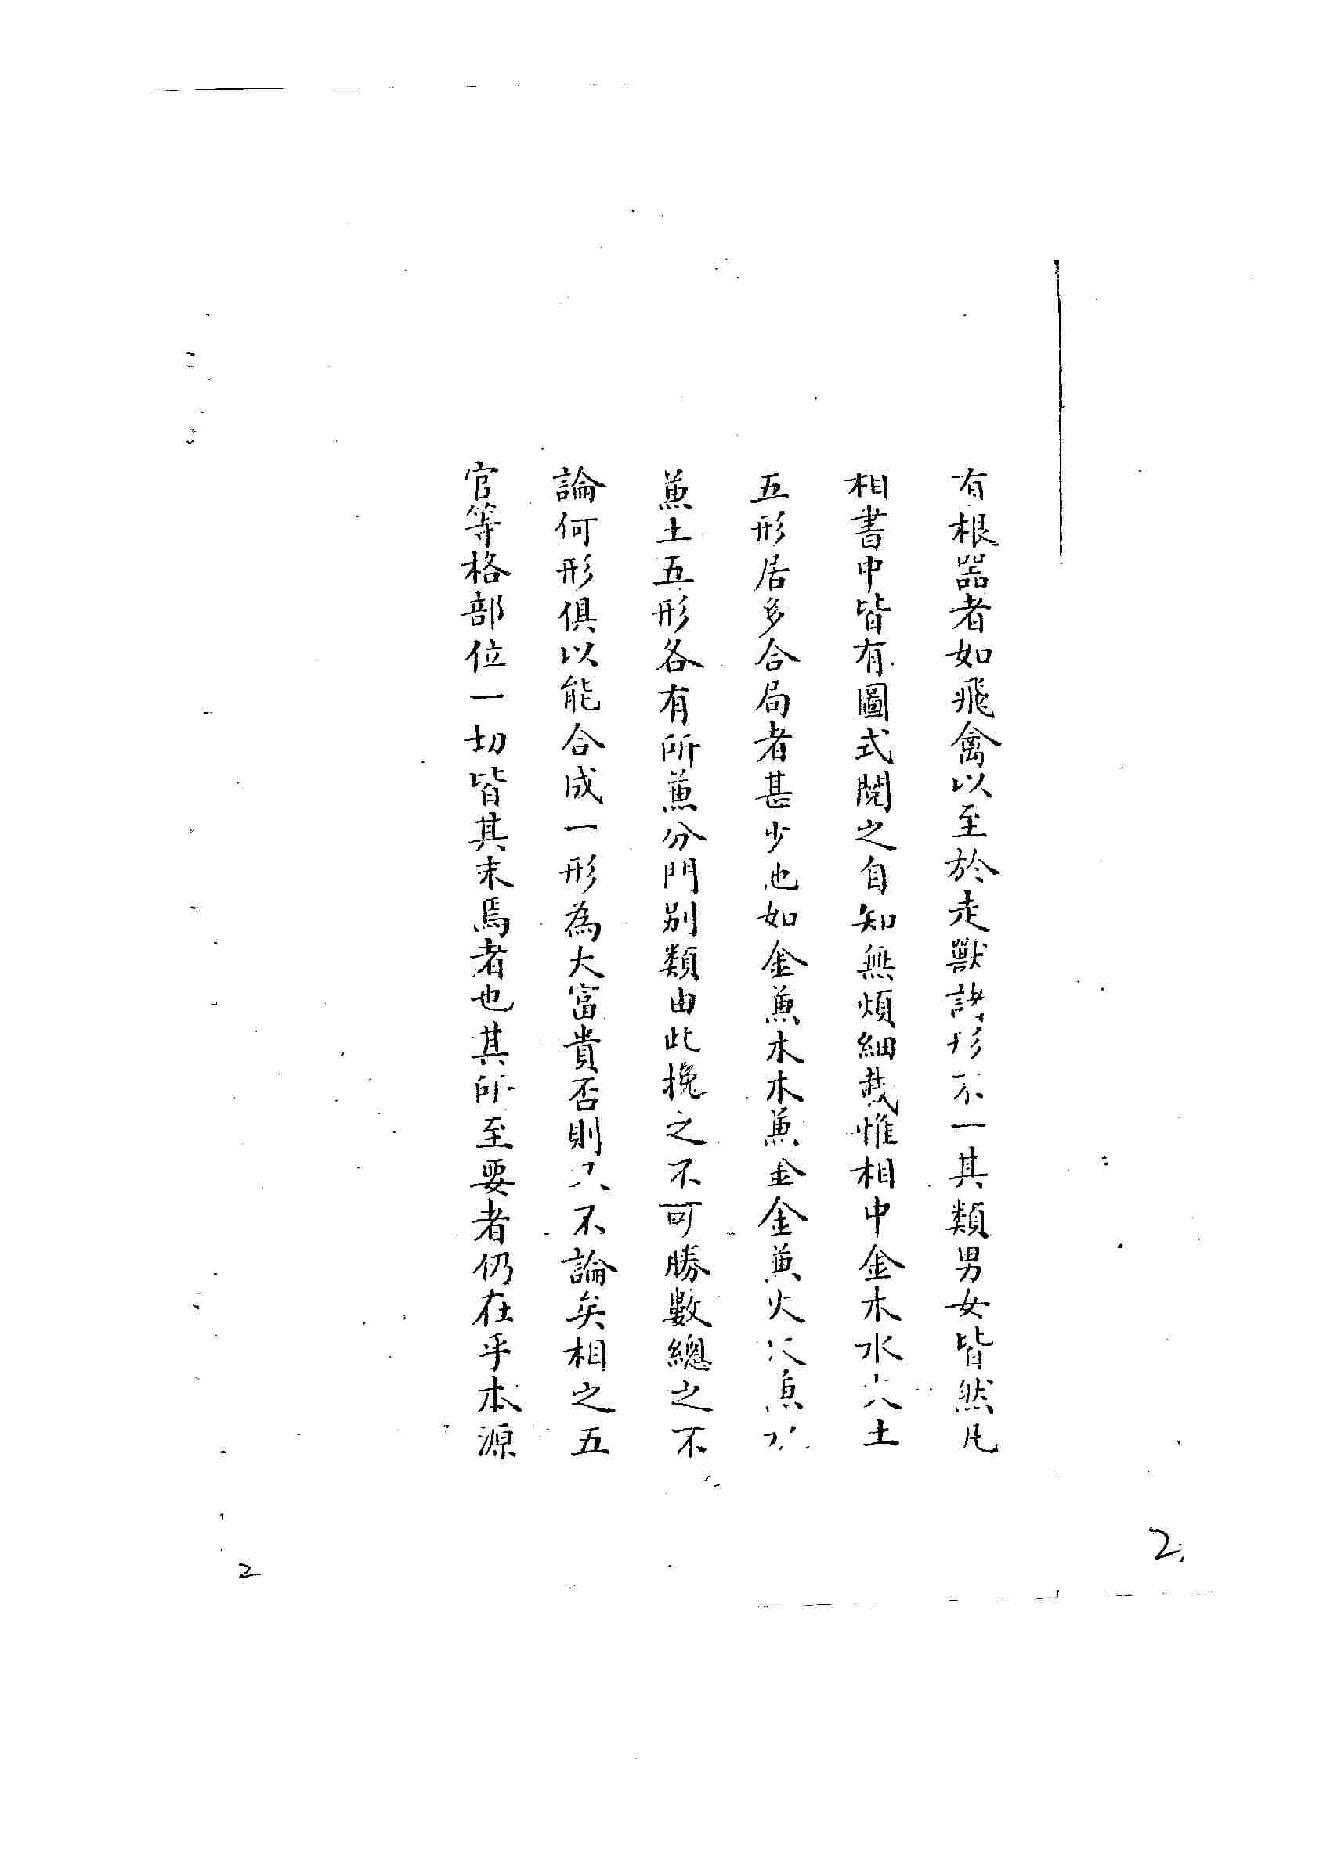 有根器者如飛禽以至於走獸諸形不一其類男女皆然凡
相書中皆有圖式閱之自知無煩細哉惟相中金木水火土
五形居多合局者甚少也如金蕉木木蕉金金蕉火火蕉
蕉土五形各有所蕉分門別類由此挽之不可勝數總之不
論何形俱以能合成一形為大富貴否則只不論矣相之五
官等格部位一切皆其末焉者也其所至要者仍在乎本源
2
2